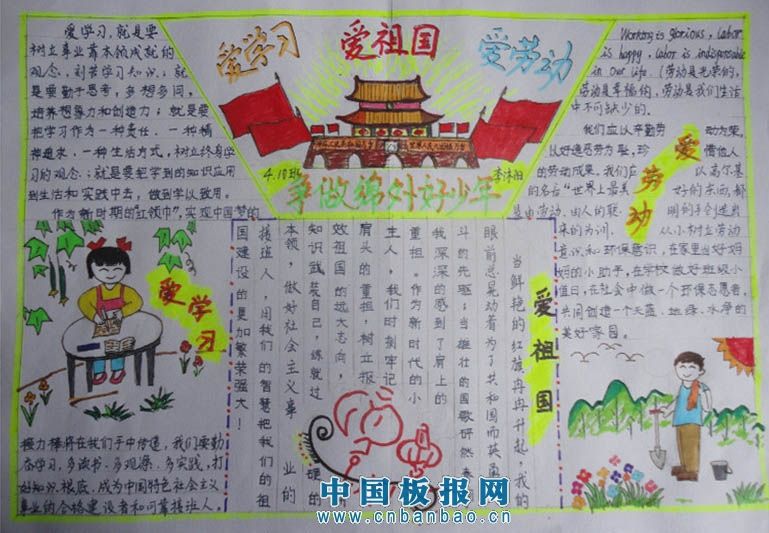 爱学习
爱祖国
爱劳动
4.10班
李沐阳
争做绵外好少年
爱学习，就是要
树立事业靠本领成就的
观念，刻苦学习知识；就
是要勤于思考，多想多问，
培养想象力和创造力；就是要
把学习作为一种责任、一种精
神追求、一种生活方式，树立终身学
习的观念；就是要把学到的知识应用
到生活和实践中去，做到学以致用。
作为新时期的"红领巾"，实现中国梦的
爱学习
接力棒将在我们手中传递，我们要勤
奋学习，多读书、多观察、多实践，打
好知识根底，成为中国特色社会主义
事业的合格建设者和可靠接班人。
爱祖国
当鲜艳的红旗冉冉升起，我的
眼前总晃动着为了共和国而英勇
斗的先驱；当雄壮的国歌
我深深的感到了肩上的
重担。作为新时代的小
主人，我们时刻牢记
肩头的重担，树立报
效祖国的远大志向，
知识武装自己，练就过硬的
本领，做好社会主义事业的
接班人，用我们的智慧把我们的祖
国建设的更加繁荣强大！
Working is glorious, labor
is happy, labor is indispensable
in our life. (劳动是光荣的，
劳动是幸福的，劳动是我们生活
中不可缺少的。
爱劳动
我们应以辛勤劳动为荣，
以好逸恶劳为耻，珍惜他人
的劳动成果。我们应以高尔基
的名言"世界上最美好的东西，都
是由劳动、由人的聪明的手创造出
来的"为训。从小树立劳动
意识和环保意识，在家里当好妈
妈的小助手，在学校做好班级小
值日，在社会中做一个环保志愿者，
共同创造一个天蓝、地绿、水净的
美好家园。
中国板报网
www.cnbanbao.cn